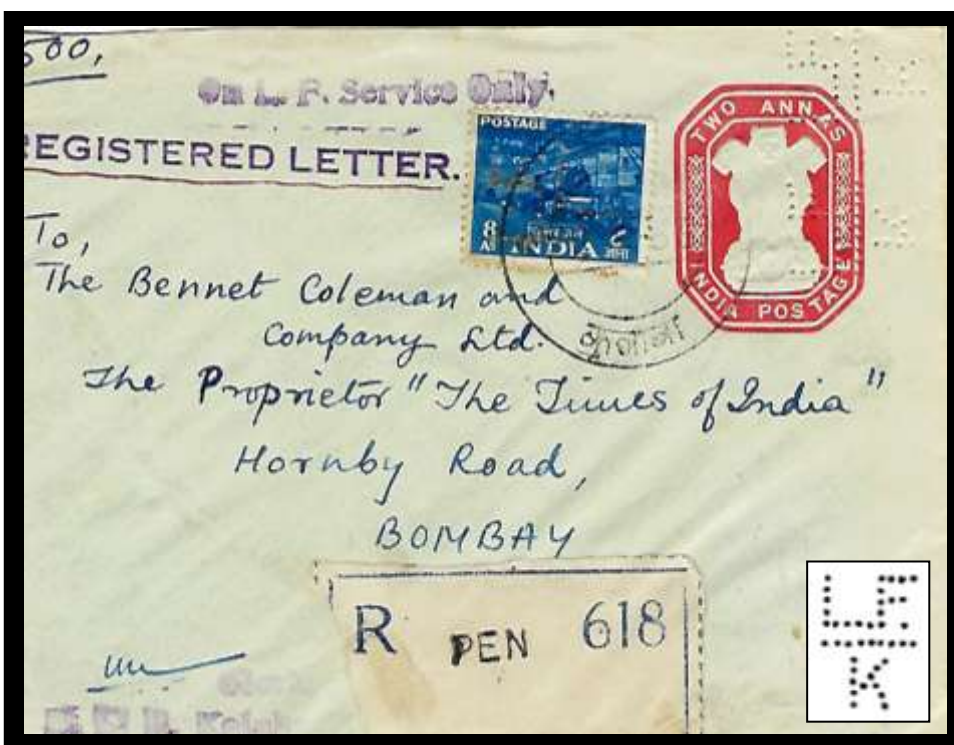 500,
On L. F. Service Only.
REGISTERED LETTER.
POSTAGE
8
AS
INDIA
TWO ANNAS
INDIA POSTAGE
To,
The Bennet Coleman and
Company Ltd.
The Proprietor "The Times of India"
Hornby Road,
BOMBAY
R PEN 618
L.F.
K